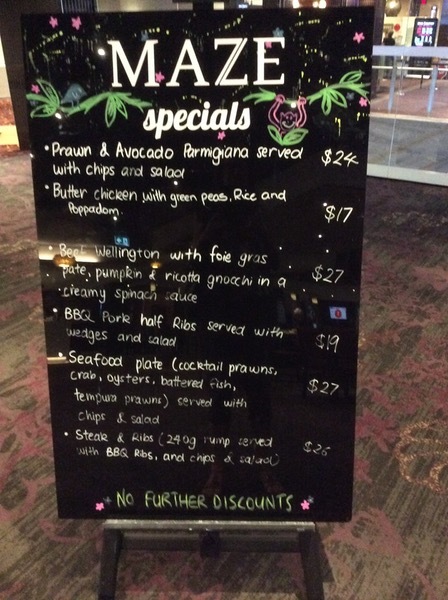 MAZE
specials
• Prawn & Avocado Parmigiana served $24
with chips and salad
• Butter chicken with green peas, Rice and
Poppadom. $17
• Beef Wellington with foie gras
pate, pumpkin & ricotta gnocchi in a $27
creamy spinach sauce
• BBQ Pork half Ribs served with $19
wedges and salad
• Seafood plate (cocktail prawns,
crab, oysters, battered fish, $27
tempura prawns) served with
chips & salad
• Steak & Ribs (240g rump served
with BBQ Ribs, and chips & salad)
NO FURTHER DISCOUNTS